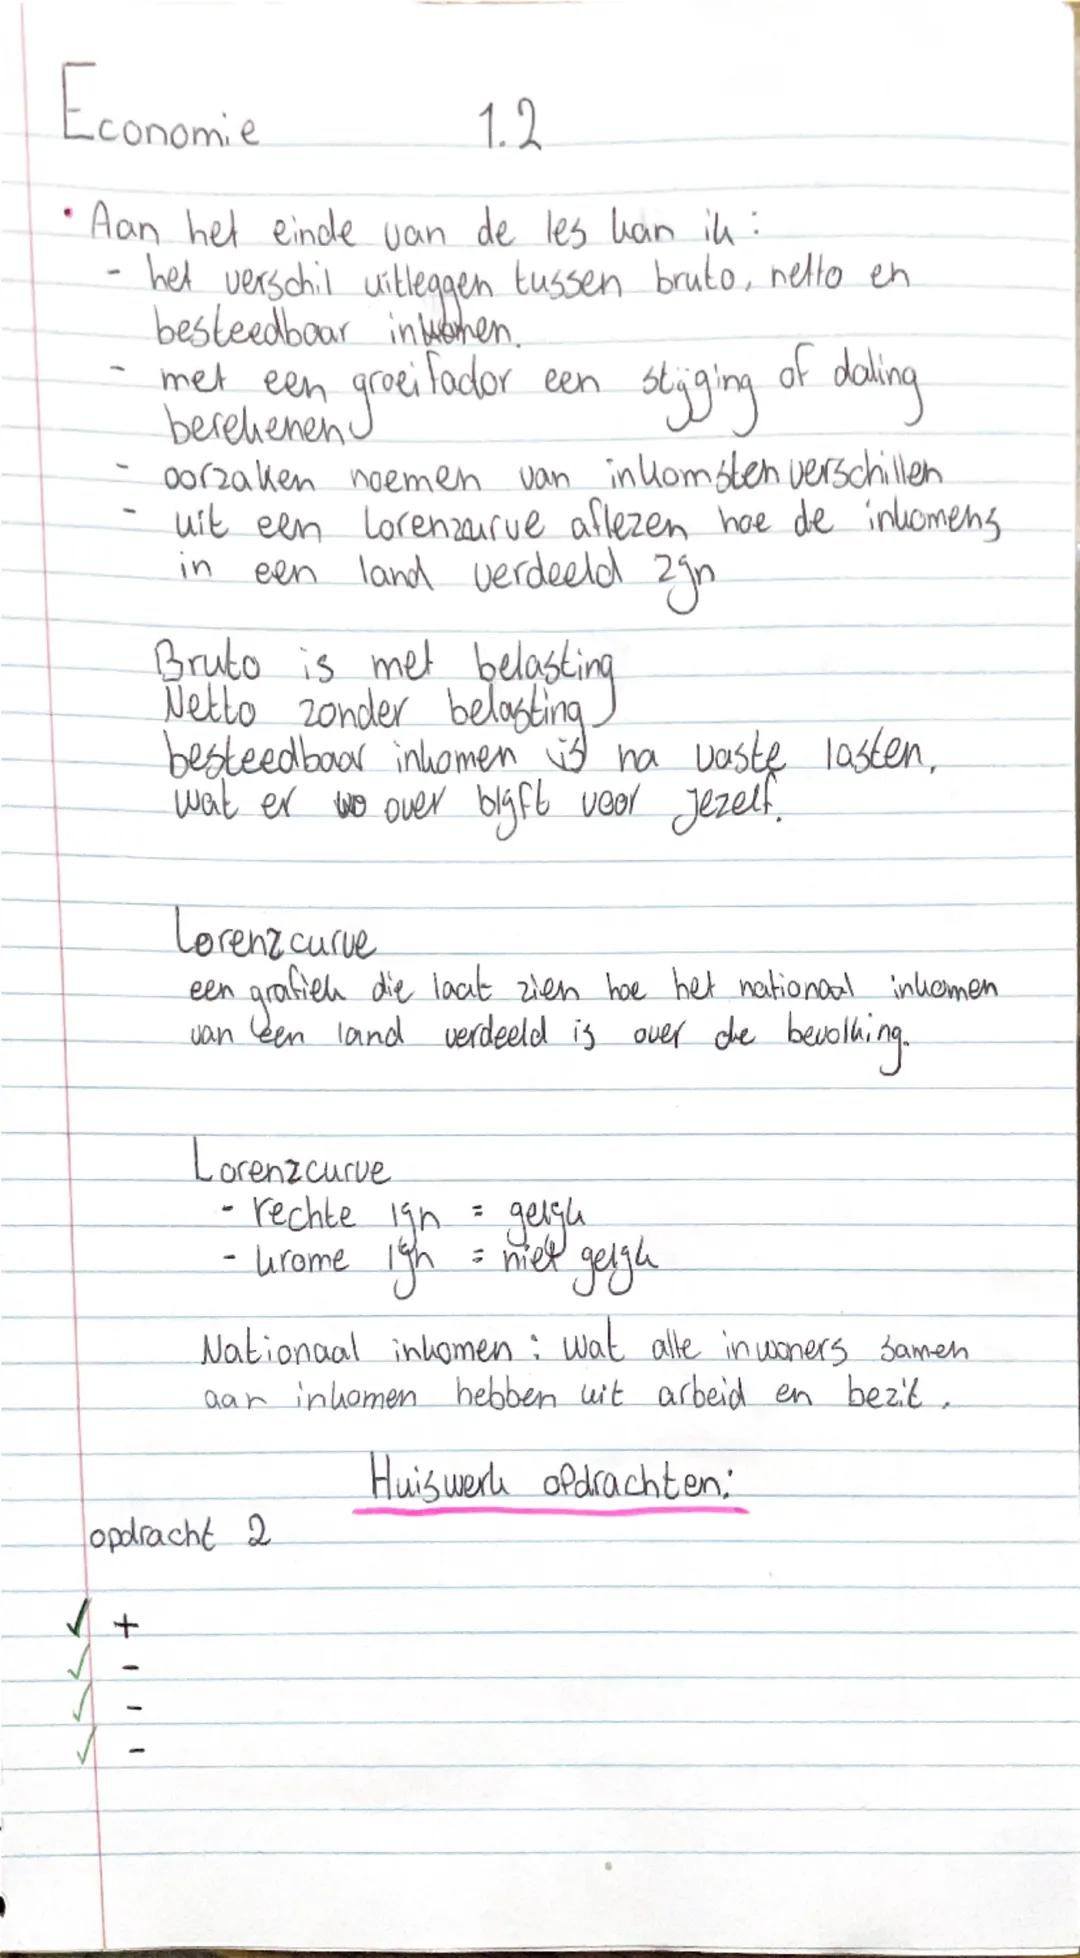 Economie 1.2
• Aan het einde van de les kan ik:
- het verschil uitleggen tussen bruto, netto en
besteedbaar inkomen.
- met een groeifactor een stijging of daling
berekenen
- oorzaken noemen van inkomsten verschillen
- uit een Lorenzcurve aflezen hoe de inkomens
in een land verdeeld zijn
Bruto is met belasting
Netto zonder belasting
besteedbaar inkomen is na vaste lasten,
wat er over blijft voor jezelf.
Lorenzcurve
een grafiek die laat zien hoe het nationaal inkomen
van een land verdeeld is over de bevolking.
Lorenzcurve
- rechte lijn = gelijk
- krome lijn = niet gelijk
Nationaal inkomen: wat alle inwoners samen
aan inkomen hebben uit arbeid en bezit.
Huiswerk opdrachten:
opdracht 2
✓ +
✓ -
✓ -
✓ -